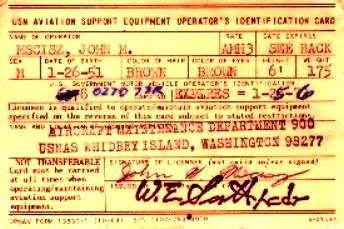 USN AVIATION SUPPORT EQUIPMENT OPERATOR'S IDENTIFICATION CARD
NAME OF OPERATOR RATE DATE EXPIRES
MSCISZ, JOHN M. AMH3 SEE BACK
SEX DATE OF BIRTH COLOR OF HAIR COLOR OF EYES HEIGHT WEIGHT
M 1-26-51 BROWN BROWN 6' 175
U.S. GOVERNMENT MOTOR VEHICLE OPERATOR'S IDENTIFICATION
EXPIRES = 1-25-
Licensee is qualified to operate/maintain aviation support equipment
specified on the reverse of this card subject to stated restrictions.
NAME AND
AIRCRAFT MAINTENANCE DEPARTMENT 900
USNAS WHIDBEY ISLAND, WASHINGTON 98277
NOT TRANSFERABLE
Card must be carried
at all times when
operating/maintaining
aviation support
equipment.
SIGNATURE OF LICENSEE (Not valid unless signed)
John M.
ISSUED
W.E.
OPNAV FORM